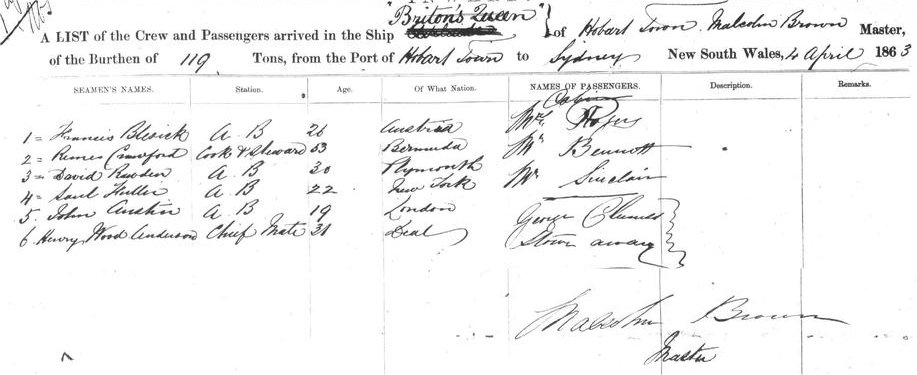 "Briton's Queen"
A LIST of the Crew and Passengers arrived in the Ship of Hobart Town. Malcolm Brown Master,
of the Burthen of 119 Tons, from the Port of Hobart Town to Sydney New South Wales, 4 April 1863
SEAMEN'S NAMES. Station. Age. Of What Nation. NAMES OF PASSENGERS. Description. Remarks.
Cabin
1 = Francis A. B 26 Austria Mrs Rogers
2 = Crawford Cook & Steward 53 Bermuda Mr Bennett
3 = David A. B 30 Plymouth Mr Sinclair
4 = Saul Fuller A. B 22 New York
5. John Austin A. B 19 London George
6. Henry Wood Anderson Chief Mate 31 Deal Stow away
Malcolm Brown
Master